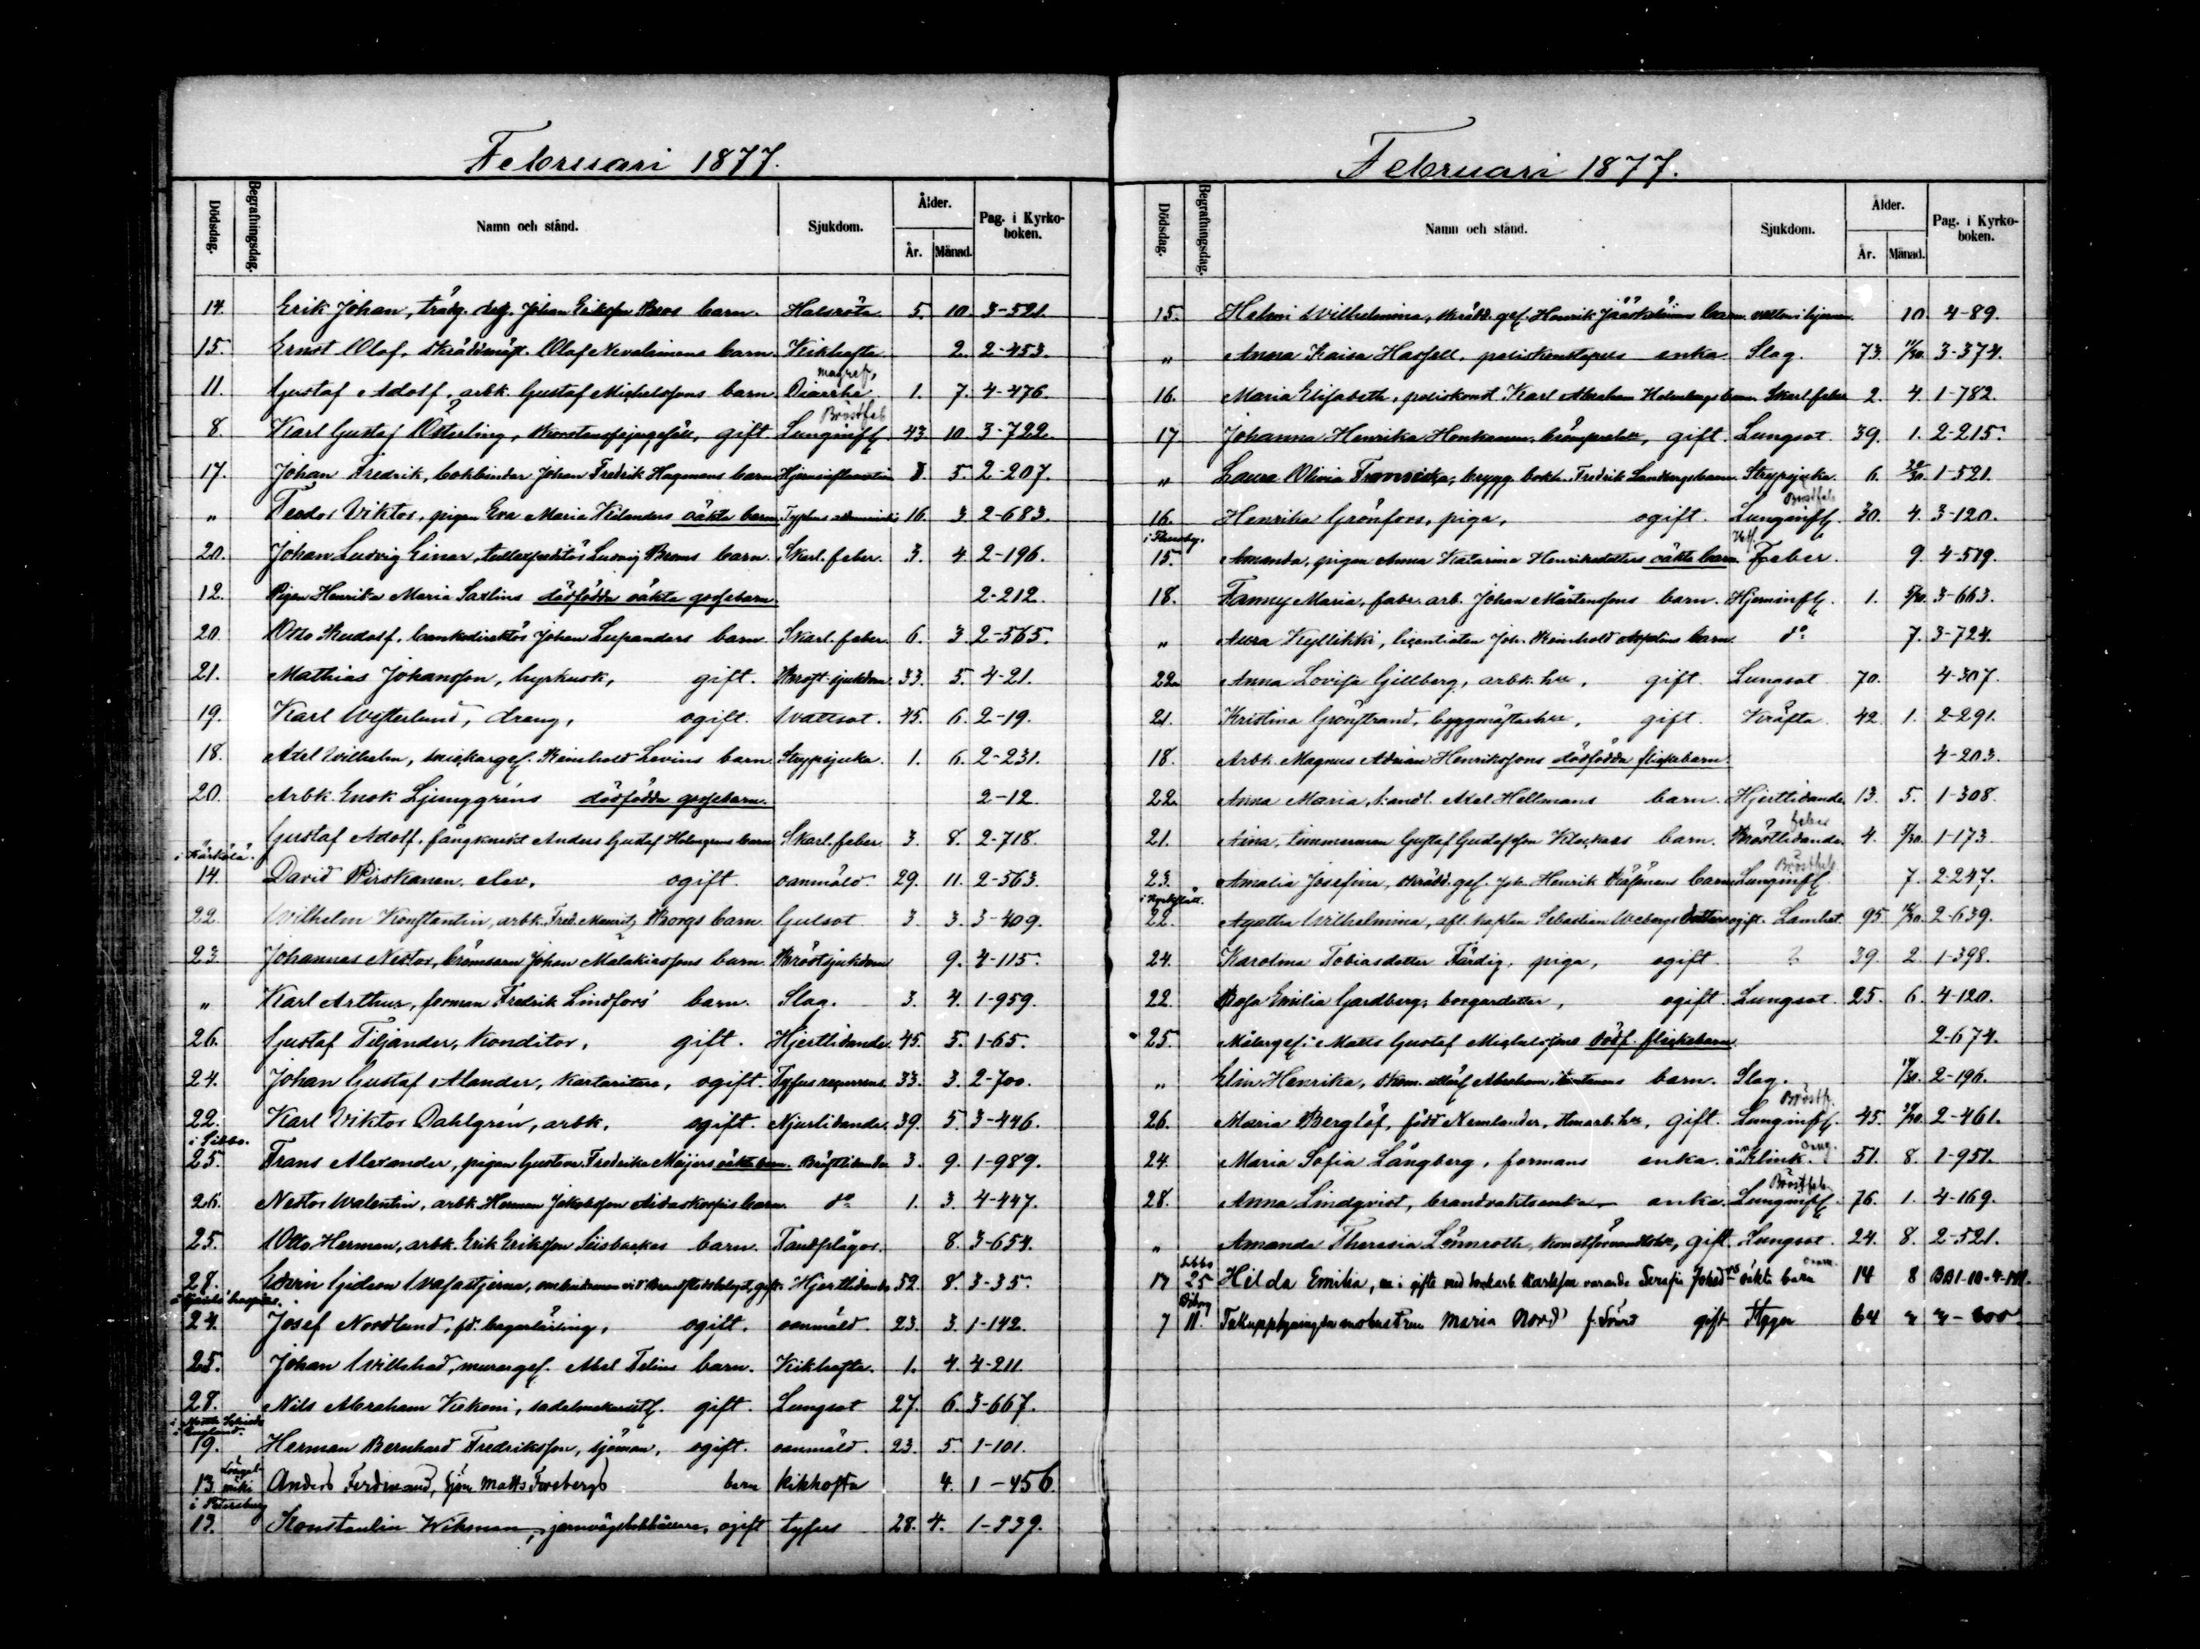 Februari 1877.
Dödsdag. Begrafningsdag. Namn och stånd. Sjukdom. Ålder. År. Månad. Pag. i Kyrkoboken.
14. Erik Johan, Johan Eriksson barn. Halsröta 5. 10. 3-521.
15. Ernst Olof, Olof Nevalainens barn. Kikhosta 2. 2-453.
11. Gustaf Adolf, arbk. Gustaf Michelssons barn. Diarrhé 1. 7. 4-476.
Bröstfeb
8. Karl Gustaf Österling, gift. Lunginfl. 43. 10. 3-722.
17. Johan Fredrik, bokbindar Johan Fredrik Hagmans barn Hjerninflamation 8. 5. 2-207.
„ Feodor Viktor, pigan Eva Maria Kilanders oäkta barn. Typhus 16. 3. 2-683.
20. Johan Ludvig Einar, Ludvig barn. Skarl. feber. 3. 4. 2-196.
12. Pigan Henrika Maria Saxlins dödfödda oäkta gossebarn. 2-212.
20. Otto Rudolf, bankdirektör Johan barn. Skarl. feber. 6. 3. 2-565.
21. Mathias Johansson, hyrkusk, gift. Bröst-sjukdom 33. 5. 4-21.
19. Karl Westerlund, dräng, ogift. Wattsot. 45. 6. 2-19.
18. Axel Wilhelm, snickarges. Reinhold Levins barn. Strypsjuka. 1. 6. 2-231.
20. Arbk. Enok Ljunggréns dödfödda gossebarn. 2-12.
Gustaf Adolf, fångknekt Anders Gustaf Holmgrens barn Skarl. feber. 3. 8. 2-718.
i Kärkölä.
14. David Pirskanen, elev, ogift. oanmäld. 29. 11. 2-563.
22. Wilhelm Konstantin, arbk. Fred. Mauritz Borgs barn. Gulsot 3. 3. 3-409.
23. Johannes Nestor, bromsarn Johan Malakiassons barn. Bröstsjukdom 9. 4-115.
„ Karl Arthur, forman Fredrik Lindfors' barn. Slag. 3. 4. 1-959.
26. Gustaf Tiljander, Konditor, gift. Hjertlidande. 45. 5. 1-65.
24. Johan Gustaf Alander, ogift. Tyfus recurrens 33. 3. 2-700.
22. Karl Viktor Dahlgrén, arbk. ogift. Njurlidande. 39. 5. 3-446.
i Sibbo.
25. Frans Alexander, pigan Gustava Fredrika Meijers oäkta barn. Bröstlidande 3. 9. 1-989.
26. Nestor Walentin, arbk. Herman Jakobsson barn. do 1. 3. 4-447.
25. Otto Herman, arbk. Erik Eriksson Siisbackas barn. Tandplågor. 8. 3-654.
28. Edvin Gideon Wafastjerna, gift. Hjertlidande 52. 8. 3-35.
24. Josef Nordlund, fd. bagarlärling, ogift. oanmäld. 23. 3. 1-142.
25. Johan Willehad, murargef. Abel Felins barn. Kikhosta. 1. 4. 4-211.
28. Nils Abraham Kekoni, gift. Lungsot 27. 6. 3-667.
i England.
19. Herman Bernhard Fredriksson, sjöman, ogift. oanmäld. 23. 5. 1-101.
13. Anders Ferdinand, sjöm Matts Forsbergs barn kikhosta 4. 1-456
i Petersburg
13. Konstantin Wikman, ogift tyfus 28. 4. 1-539.
Februari 1877.
Dödsdag. Begrafningsdag. Namn och stånd. Sjukdom. Ålder. År. Månad. Pag. i Kyrkoboken.
15. Helmi Wilhelmina, skrädd. gef. Henrik Jääskeläinens barn. vatten i hjernan. 10. 4-89.
„ Anna Kaisa Hasfelt, poliskonstapels enka. Slag. 73. 11/30. 3-374.
16. Maria Elisabeth, poliskonst. Karl Abraham Holmbergs barn. Skarl. feber 2. 4. 1-782.
17. Johanna Henrika Honkanen, gift. Lungsot. 39. 1. 2-215.
„ Laura Olivia Fransiska, brygg. bokh. Fredrik Sandbergs barn. Strypsjuka. 6. 1-521.
Bröstfeb
16. Henrika Grönfors, piga, ogift. Lunginfl. 30. 4. 3-120.
15. Amanda, pigan Anna Katarina Henriksdotters oäkta barn. Feber. 9. 4-519.
18. Fanny Maria, fabr. arb. Johan Mårtenssons barn. Hjerninfl. 1. 3-663.
„ Aura Kyllikki, licentiaten Joh. Reinhold Aspelins barn. do 7. 3-724.
22. Anna Lovisa Gillberg, arbk. hu, gift. Lungsot 70. 4-307.
21. Kristina Grönstrand, byggmästarhu, gift. Kräfta. 42. 1. 2-291.
18. Arbk. Magnus Adrian Henrikssons dödfödda flickebarn. 4-203.
22. Anna Maria, handl. Axel Hellmans barn. Hjertlidande. 13. 5. 1-308.
feber
21. Aina, timmerman Gustaf Gustafsson Klockars barn. Bröstlidande. 4. 1-173.
Bröstfeb
23. Amalia Josefina, skrädd. gef. Joh. Henrik Räsänens barn Lunginfl. 7. 2-247.
i Kyrkslätt.
22. Agatha Wilhelmina, afl. kapten Sebastian Webergs dotter ogift. Lamhet. 95. 2-639.
24. Karolina Tobiasdotter Färdig, piga, ogift. ? 39. 2. 1-398.
22. Rosa Emilia Gardberg, borgardotter, ogift. Lungsot. 25. 6. 4-120.
25. Målargef. Matts Gustaf Michelssons dödf. flickebarn 2-674.
„ Elin Henrika, Abraham barn. Slag. 2-196.
Bröstf.
26. Maria Berglöf, född Nemlander, gift. Lunginfl. 45. 2-461.
24. Maria Sofia Långberg, formans enka. Klink. 51. 8. 1-951.
Bröstfeb
28. Anna Lindqvist, brandvaktsenka, enka. Lunginfl. 76. 1. 4-169.
„ Amanda Theresia Lönnroth, gift. Lungsot. 24. 8. 2-521.
Sibbo
17 25 Hilda Emilia, Serafia oäkta barn 14 8
7 11. Maria Nord gift 64